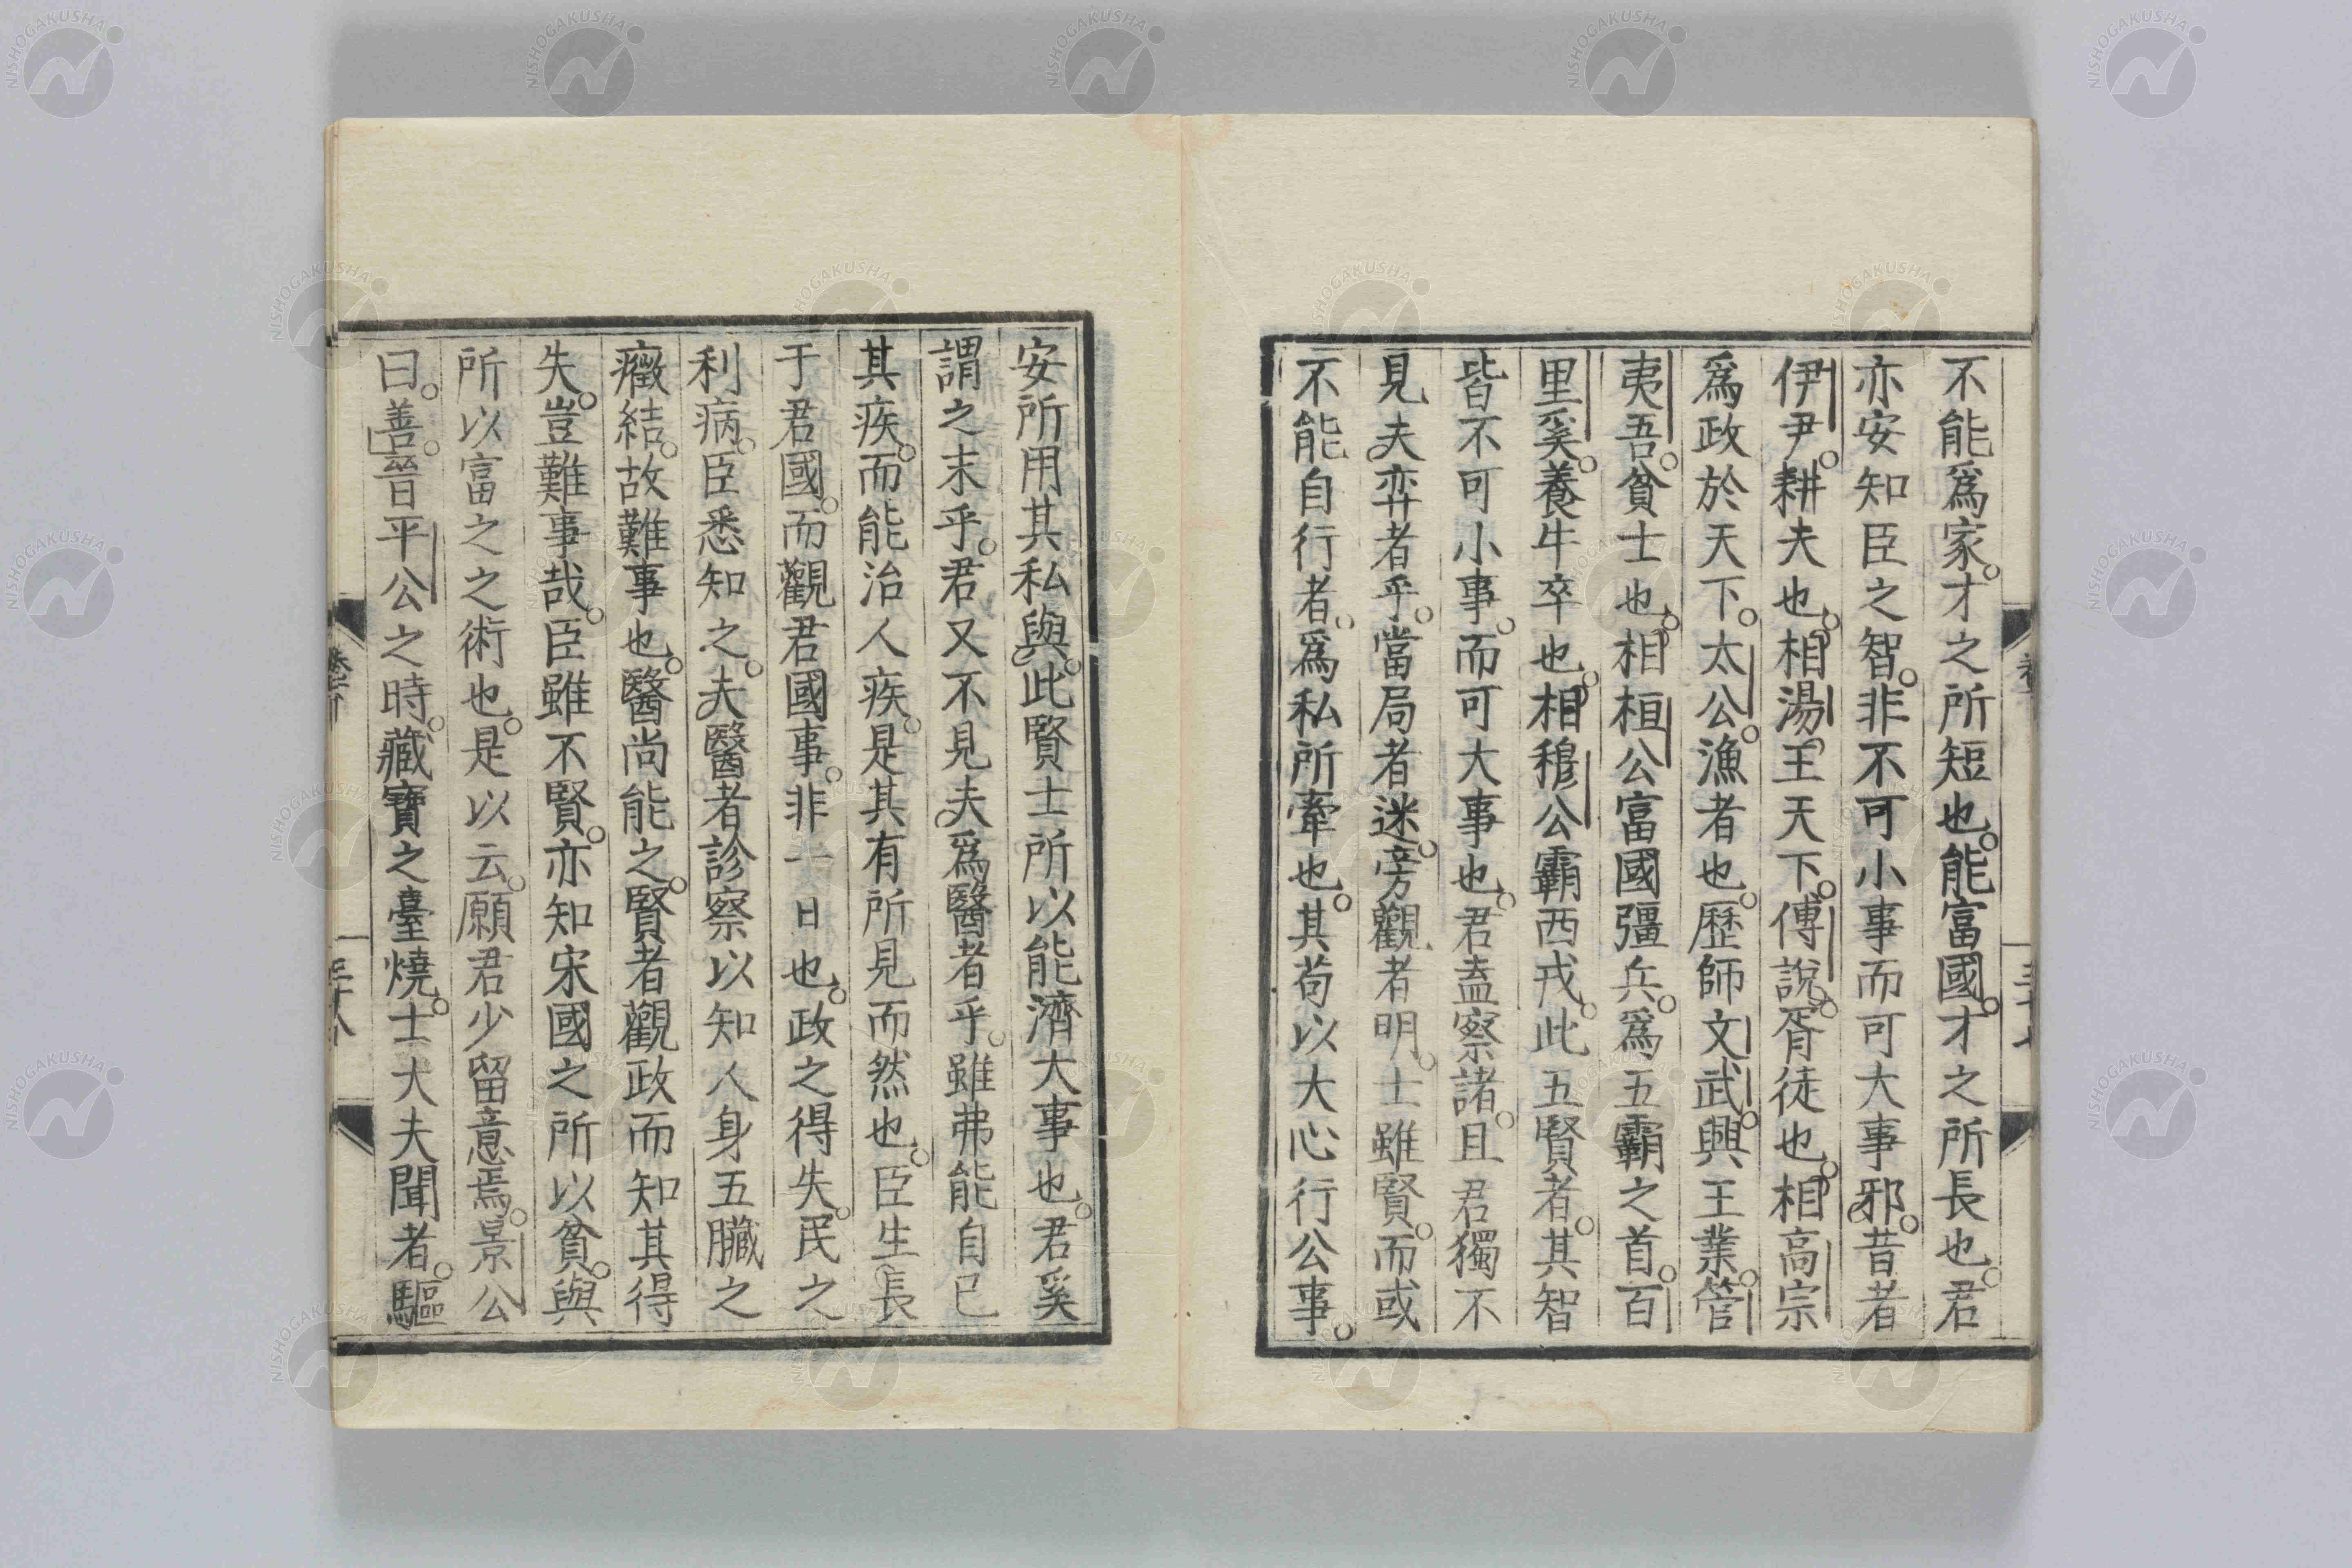 不能爲家。才之所短也。能富國。才之所長也。君
亦安知臣之智。非不可小事而可大事邪。昔者
伊尹。耕夫也。相湯。王天下。傅說。胥徒也。相高宗
爲政於天下。太公。漁者也。歷師文武。興王業。管
夷吾。貧士也。相桓公富國彊兵。爲五霸之首。百
里奚。養牛卒也。相穆公霸西戎。此五賢者。其智
皆不可小事。而可大事也。君盍察諸。且君獨不
見夫弈者乎。當局者迷。旁觀者明。士雖賢。而或
不能自行者。爲私所牽也。其苟以大心行公事。
安所用其私與。此賢士所以能濟大事也。君奚
謂之末乎。君又不見夫爲醫者乎。雖弗能自已
其疾。而能治人疾。是其有所見而然也。臣生長
于君國。而觀君國事。非一日也。政之得失。民之
利病。臣悉知之。夫醫者診察以知人身五臟之
癥結。故難事也。醫尚能之。賢者觀政而知其得
失。豈難事哉。臣雖不賢。亦知宋國之所以貧。與
所以富之之術也。是以云。願君少留意焉。景公
曰。善。晉平公之時。藏寶之臺燒。士大夫聞者。驅
NISHOGAKUSHA